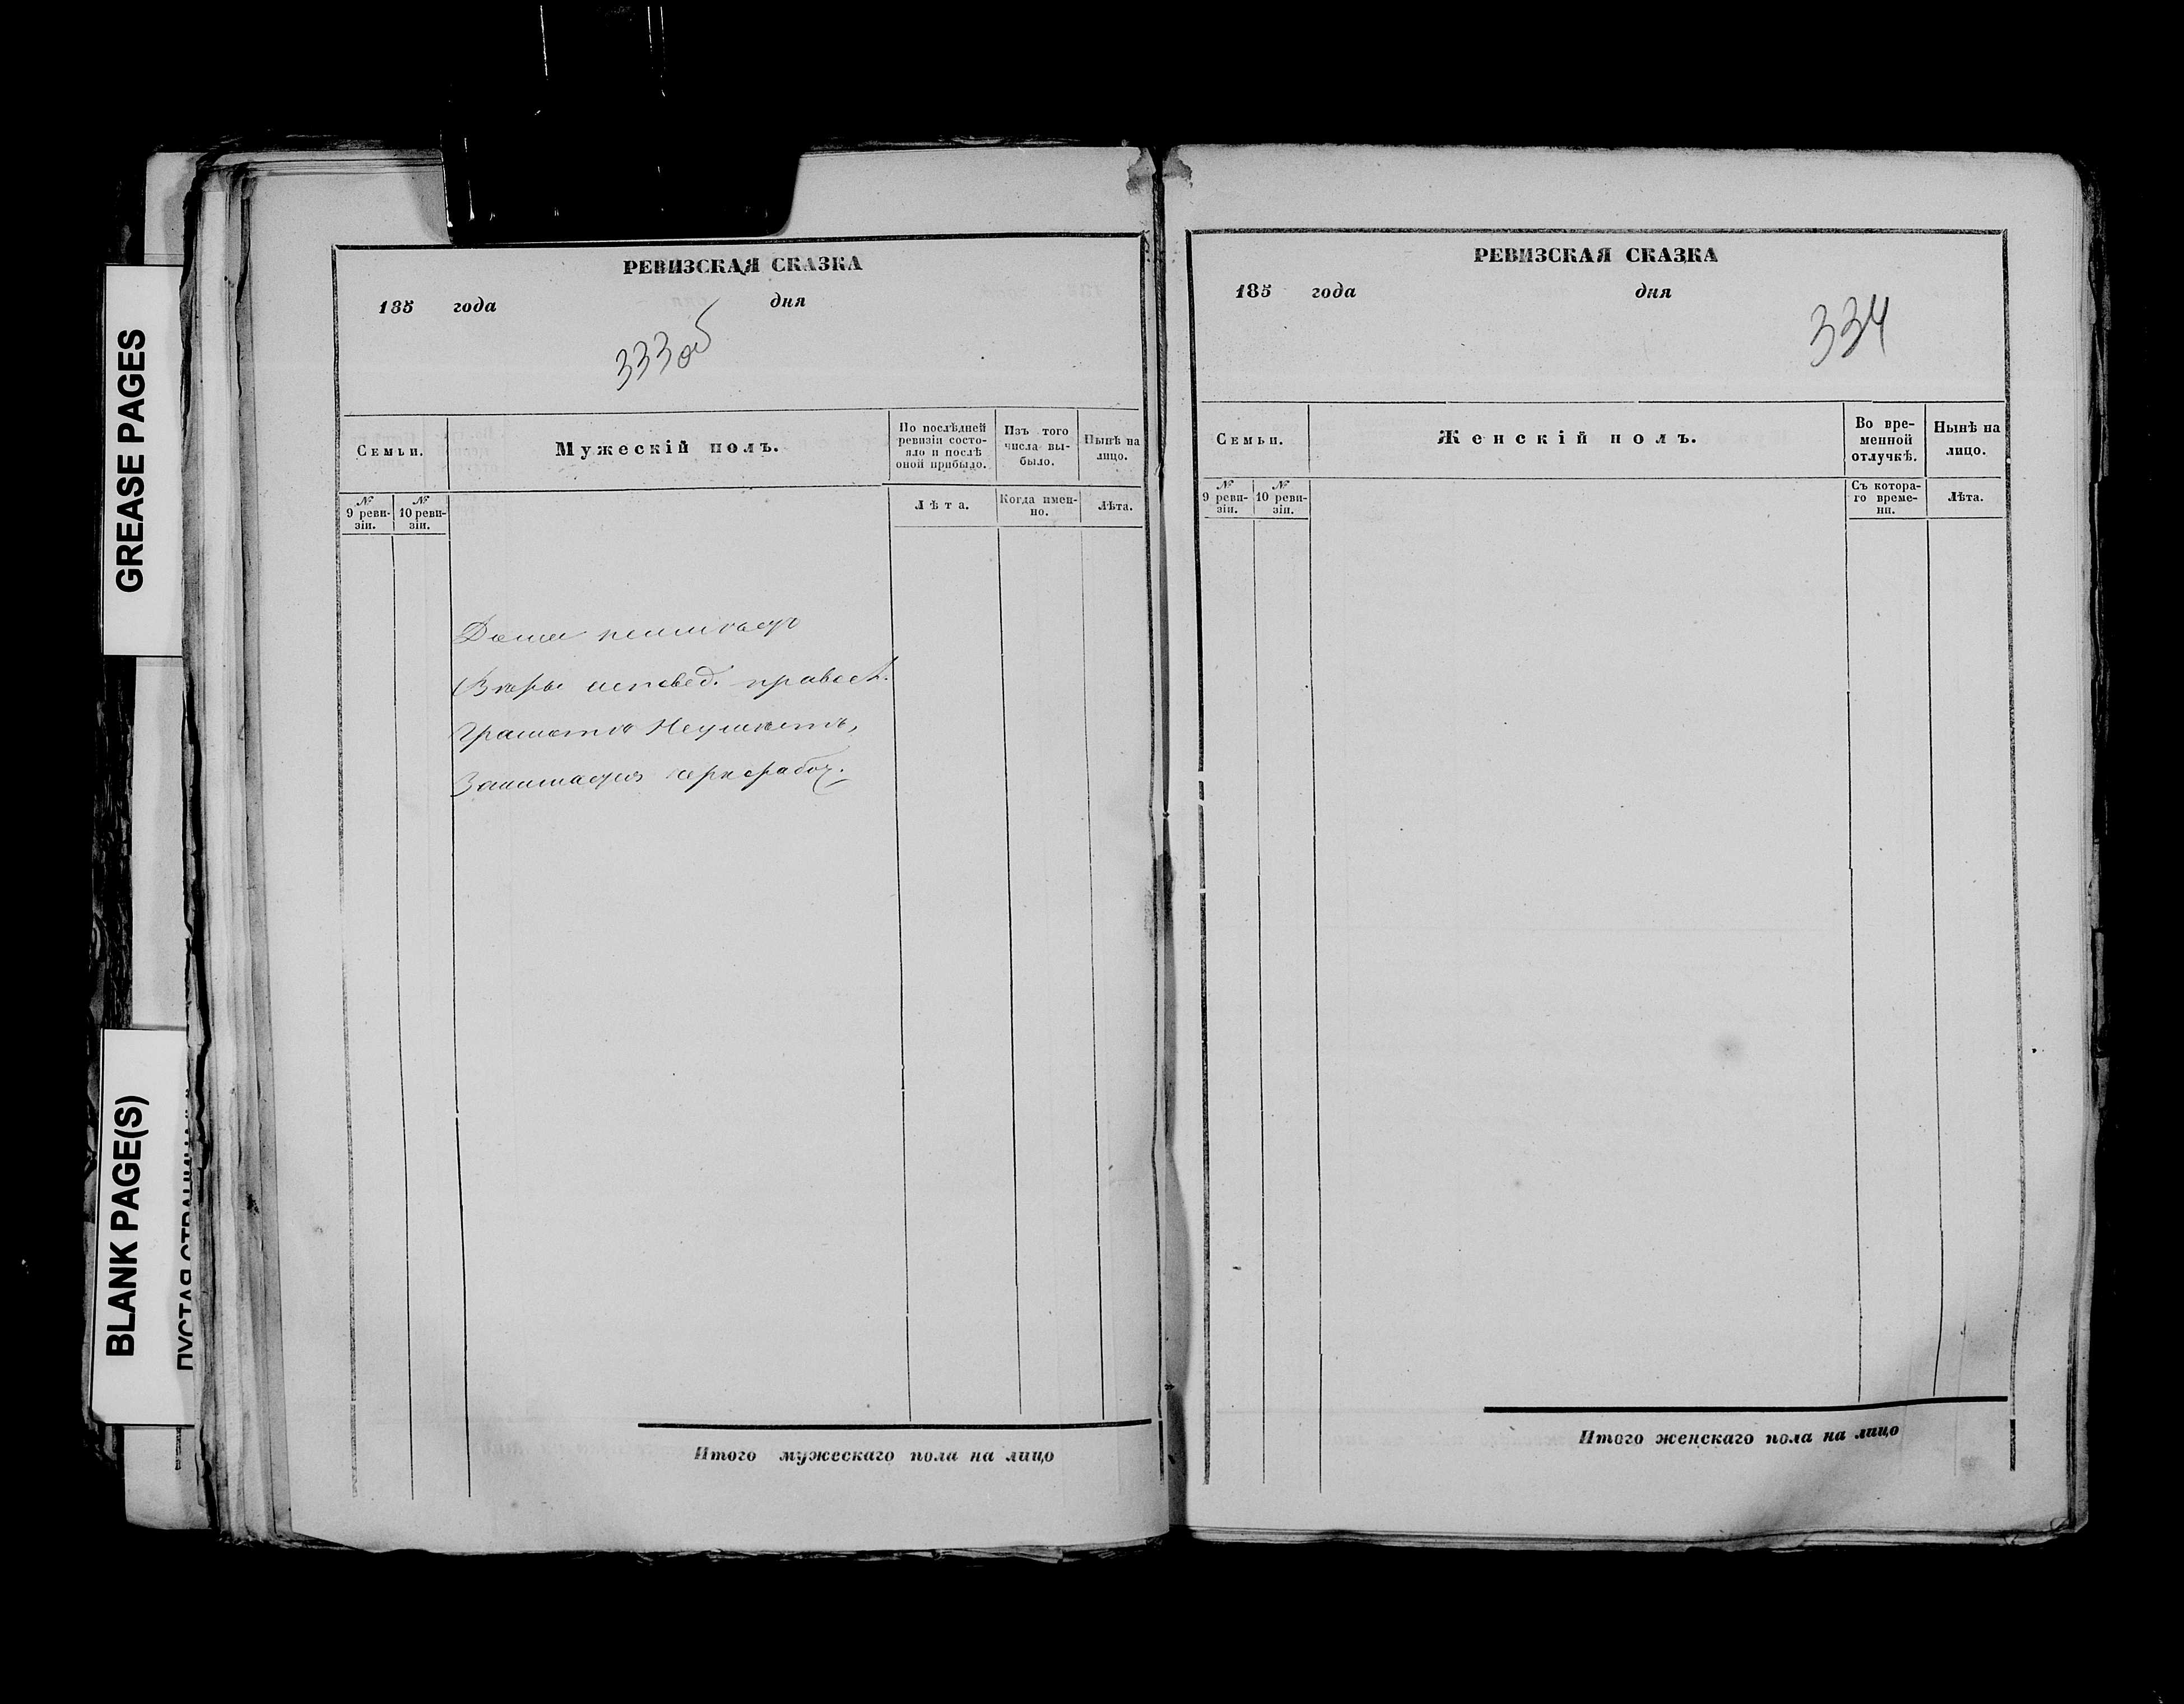 GREASE PAGES
BLANK PAGE(S)
ПУСТАЯ СТРАНИЦА
РЕВИЗСКАЯ СКАЗКА
185 года дня
333об
Семьи.
Мужескій полъ.
По послѣдней ревизіи состояло и послѣ оной прибыло.
Изъ того числа выбыло.
Нынѣ на лицо.
№ 9 ревизіи.
№ 10 ревизіи.
Лѣта.
Когда именно.
Лѣта.
Дома неимѣетъ
Вѣры исповед. правосл.
Грамотѣ Неумѣетъ,
Занимается чернораб.
Итого мужескаго пола на лицо
РЕВИЗСКАЯ СКАЗКА
185 года дня
334
Семьи.
Женскій полъ.
Во временной отлучкѣ.
Нынѣ на лицо.
№ 9 ревизіи.
№ 10 ревизіи.
Съ котораго времени.
Лѣта.
Итого женскаго пола на лицо